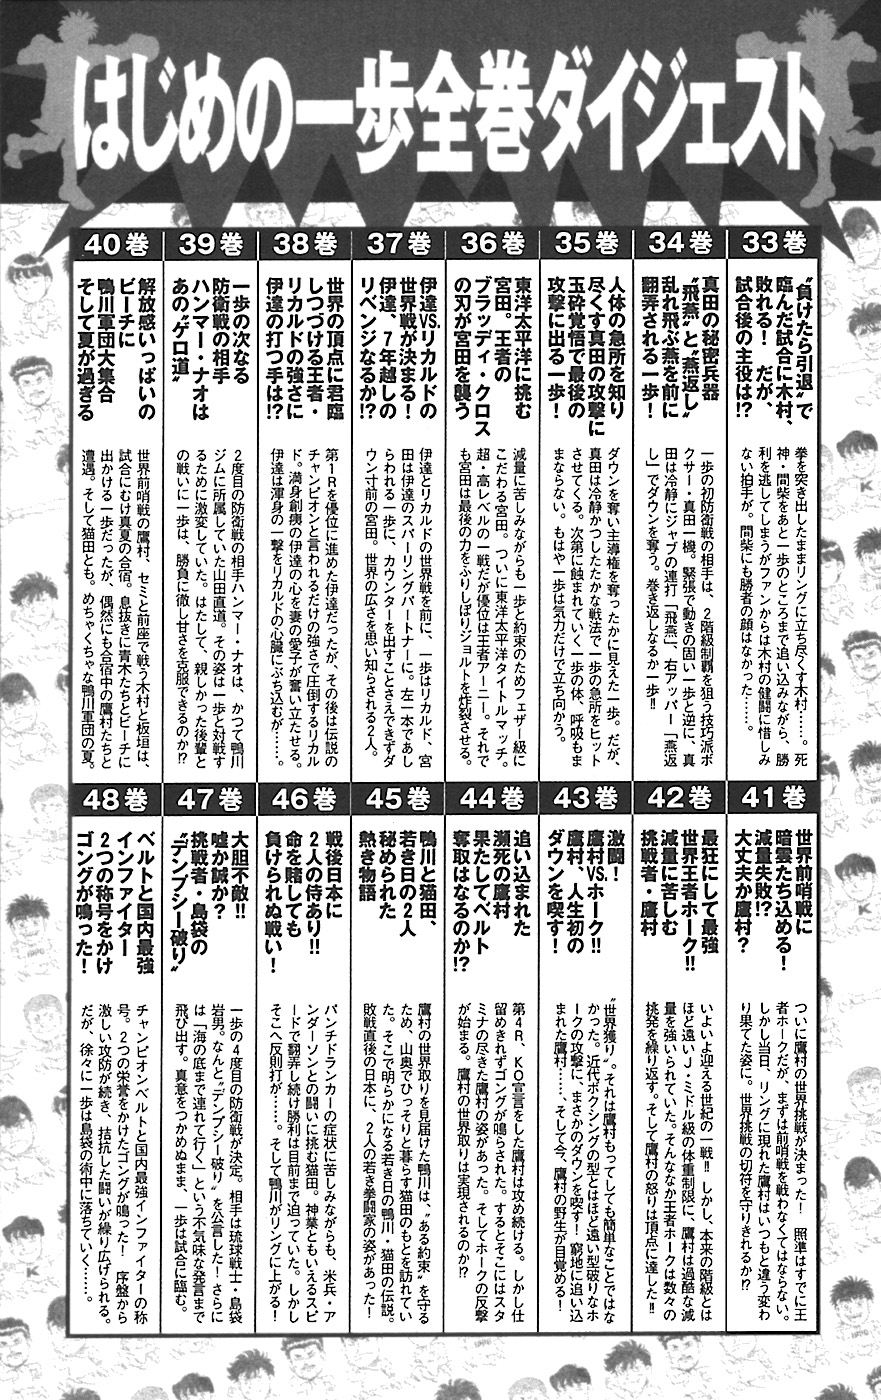 はじめの一歩全巻ダイジェスト
33巻
〝負けたら引退〟で
臨んだ試合に木村、
敗れる！　だが、
試合後の主役は!?
拳を突き出したままリングに立ち尽くす木村……。死
神・間柴をあと一歩のところまで追い込みながら、勝
利を逃してしまうがファンからは木村の健闘に惜しみ
ない拍手が。間柴にも勝者の顔はなかった……。
34巻
真田の秘密兵器
〝飛燕〟と〝燕返し〟
乱れ飛ぶ燕を前に
翻弄される一歩！
一歩の初防衛戦の相手は、2階級制覇を狙う技巧派ボ
クサー・真田一機。緊張で動きの固い一歩と逆に、真
田は冷静にジャブの連打「飛燕」、右アッパー「燕返
し」でダウンを奪う。巻き返しなるか一歩!!
35巻
人体の急所を知り
尽くす真田の攻撃に
玉砕覚悟で最後の
攻撃に出る一歩！
ダウンを奪い主導権を奪ったかに見えた一歩。だが、
真田は冷静かつしたたかな戦法で一歩の急所をヒット
させてくる。次第に蝕まれていく一歩の体、呼吸もま
まならない。もはや一歩は気力だけで立ち向かう。
36巻
東洋太平洋に挑む
宮田。王者の
ブラッディ・クロス
の刃が宮田を襲う
減量に苦しみながらも一歩と約束のためフェザー級に
こだわる宮田。ついに東洋太平洋タイトルマッチ。
超・高レベルの一戦だが優位は王者アーニー。それで
も宮田は最後の力をふりしぼりジョルトを炸裂させる。
37巻
伊達VS.リカルドの
世界戦が決まる！
伊達、7年越しの
リベンジなるか!?
伊達とリカルドの世界戦を前に、一歩はリカルド、宮
田は伊達のスパーリングパートナーに。左一本であし
らわれる一歩に、カウンターを出すことさえできずダ
ウン寸前の宮田。世界の広さを思い知らされる2人。
38巻
世界の頂点に君臨
しつづける王者・
リカルドの強さに
伊達の打つ手は!?
第1Rを優位に進めた伊達だったが、その後は伝説の
チャンピオンと言われるだけの強さで圧倒するリカル
ド。満身創痍の伊達の心を妻の愛子が奮い立たせる。
伊達は渾身の一撃をリカルドの心臓にぶち込むが……。
39巻
一歩の次なる
防衛戦の相手
ハンマー・ナオは
あの〝ゲロ道〟
2度目の防衛戦の相手ハンマー・ナオは、かつて鴨川
ジムに所属していた山田直道。その姿は一歩と対戦す
るために激変していた。はたして、親しかった後輩と
の戦いに一歩は、勝負に徹し甘さを克服できるのか!?
40巻
解放感いっぱいの
ビーチに
鴨川軍団大集合
そして夏が過ぎる
世界前哨戦の鷹村、セミと前座で戦う木村と板垣は、
試合にむけ真夏の合宿。息抜きに青木たちとビーチに
出かける一歩だったが、偶然にも合宿中の鷹村たちと
遭遇。そして猫田とも。めちゃくちゃな鴨川軍団の夏。
41巻
世界前哨戦に
暗雲たち込める！
減量失敗!?
大丈夫か鷹村？
ついに鷹村の世界挑戦が決まった！　照準はすでに王
者ホークだが、まずは前哨戦を戦わなくてはならない。
しかし当日、リングに現れた鷹村はいつもと違う変わ
り果てた姿に。世界挑戦の切符を守りきれるか!?
42巻
最狂にして最強
世界王者ホーク!!
減量に苦しむ
挑戦者・鷹村
いよいよ迎える世紀の一戦!!　しかし、本来の階級とは
ほど遠いJ・ミドル級の体重制限に、鷹村は過酷な減
量を強いられていた。そんななか王者ホークは数々の
挑発を繰り返す。そして鷹村の怒りは頂点に達した!!
43巻
激闘！
鷹村VS.ホーク!!
鷹村、人生初の
ダウンを喫す！
〝世界獲り〟。それは鷹村もってしても簡単なことではな
かった。近代ボクシングの型とはほど遠い型破りなホ
ークの攻撃に、まさかのダウンを喫す！　窮地に追い込
まれた鷹村……、そして今、鷹村の野生が目覚める！
44巻
追い込まれた
瀕死の鷹村
果たしてベルト
奪取はなるのか!?
第4R、KO宣言をした鷹村は攻め続ける。しかし仕
留めきれずゴングが鳴らされた。するとそこにはスタ
ミナの尽きた鷹村の姿があった。そしてホークの反撃
が始まる。鷹村の世界取りは実現されるのか!?
45巻
鴨川と猫田、
若き日の2人
秘められた
熱き物語
鷹村の世界取りを見届けた鴨川は、〝ある約束〟を守る
ため、山奥でひっそりと暮らす猫田のもとを訪れてい
た。そこで明らかになる若き日の鴨川・猫田の伝説。
敗戦直後の日本に、2人の若き拳闘家の姿があった！
46巻
戦後日本に
2人の侍あり!!
命を賭しても
負けられぬ戦い！
パンチドランカーの症状に苦しみながらも、米兵・ア
ンダーソンとの闘いに挑む猫田。神業ともいえるスピ
ードで翻弄し続け勝利は目前まで迫っていた。しかし
そこへ反則打が……。そして鴨川がリングに上がる！
47巻
大胆不敵!!
嘘か誠か？
挑戦者・島袋の
〝デンプシー破り〟
一歩の4度目の防衛戦が決定。相手は琉球戦士・島袋
岩男。なんと〝デンプシー破り〟を公言した！さらに
は「海の底まで連れて行く」という不気味な発言まで
飛び出す。真意をつかめぬまま、一歩は試合に臨む。
48巻
ベルトと国内最強
インファイター
2つの称号をかけ
ゴングが鳴った！
チャンピオンベルトと国内最強インファイターの称
号。2つの栄誉をかけたゴングが鳴った！　序盤から
激しい攻防が続き、拮抗した闘いが繰り広げられる。
だが、徐々に一歩は島袋の術中に落ちていく……。